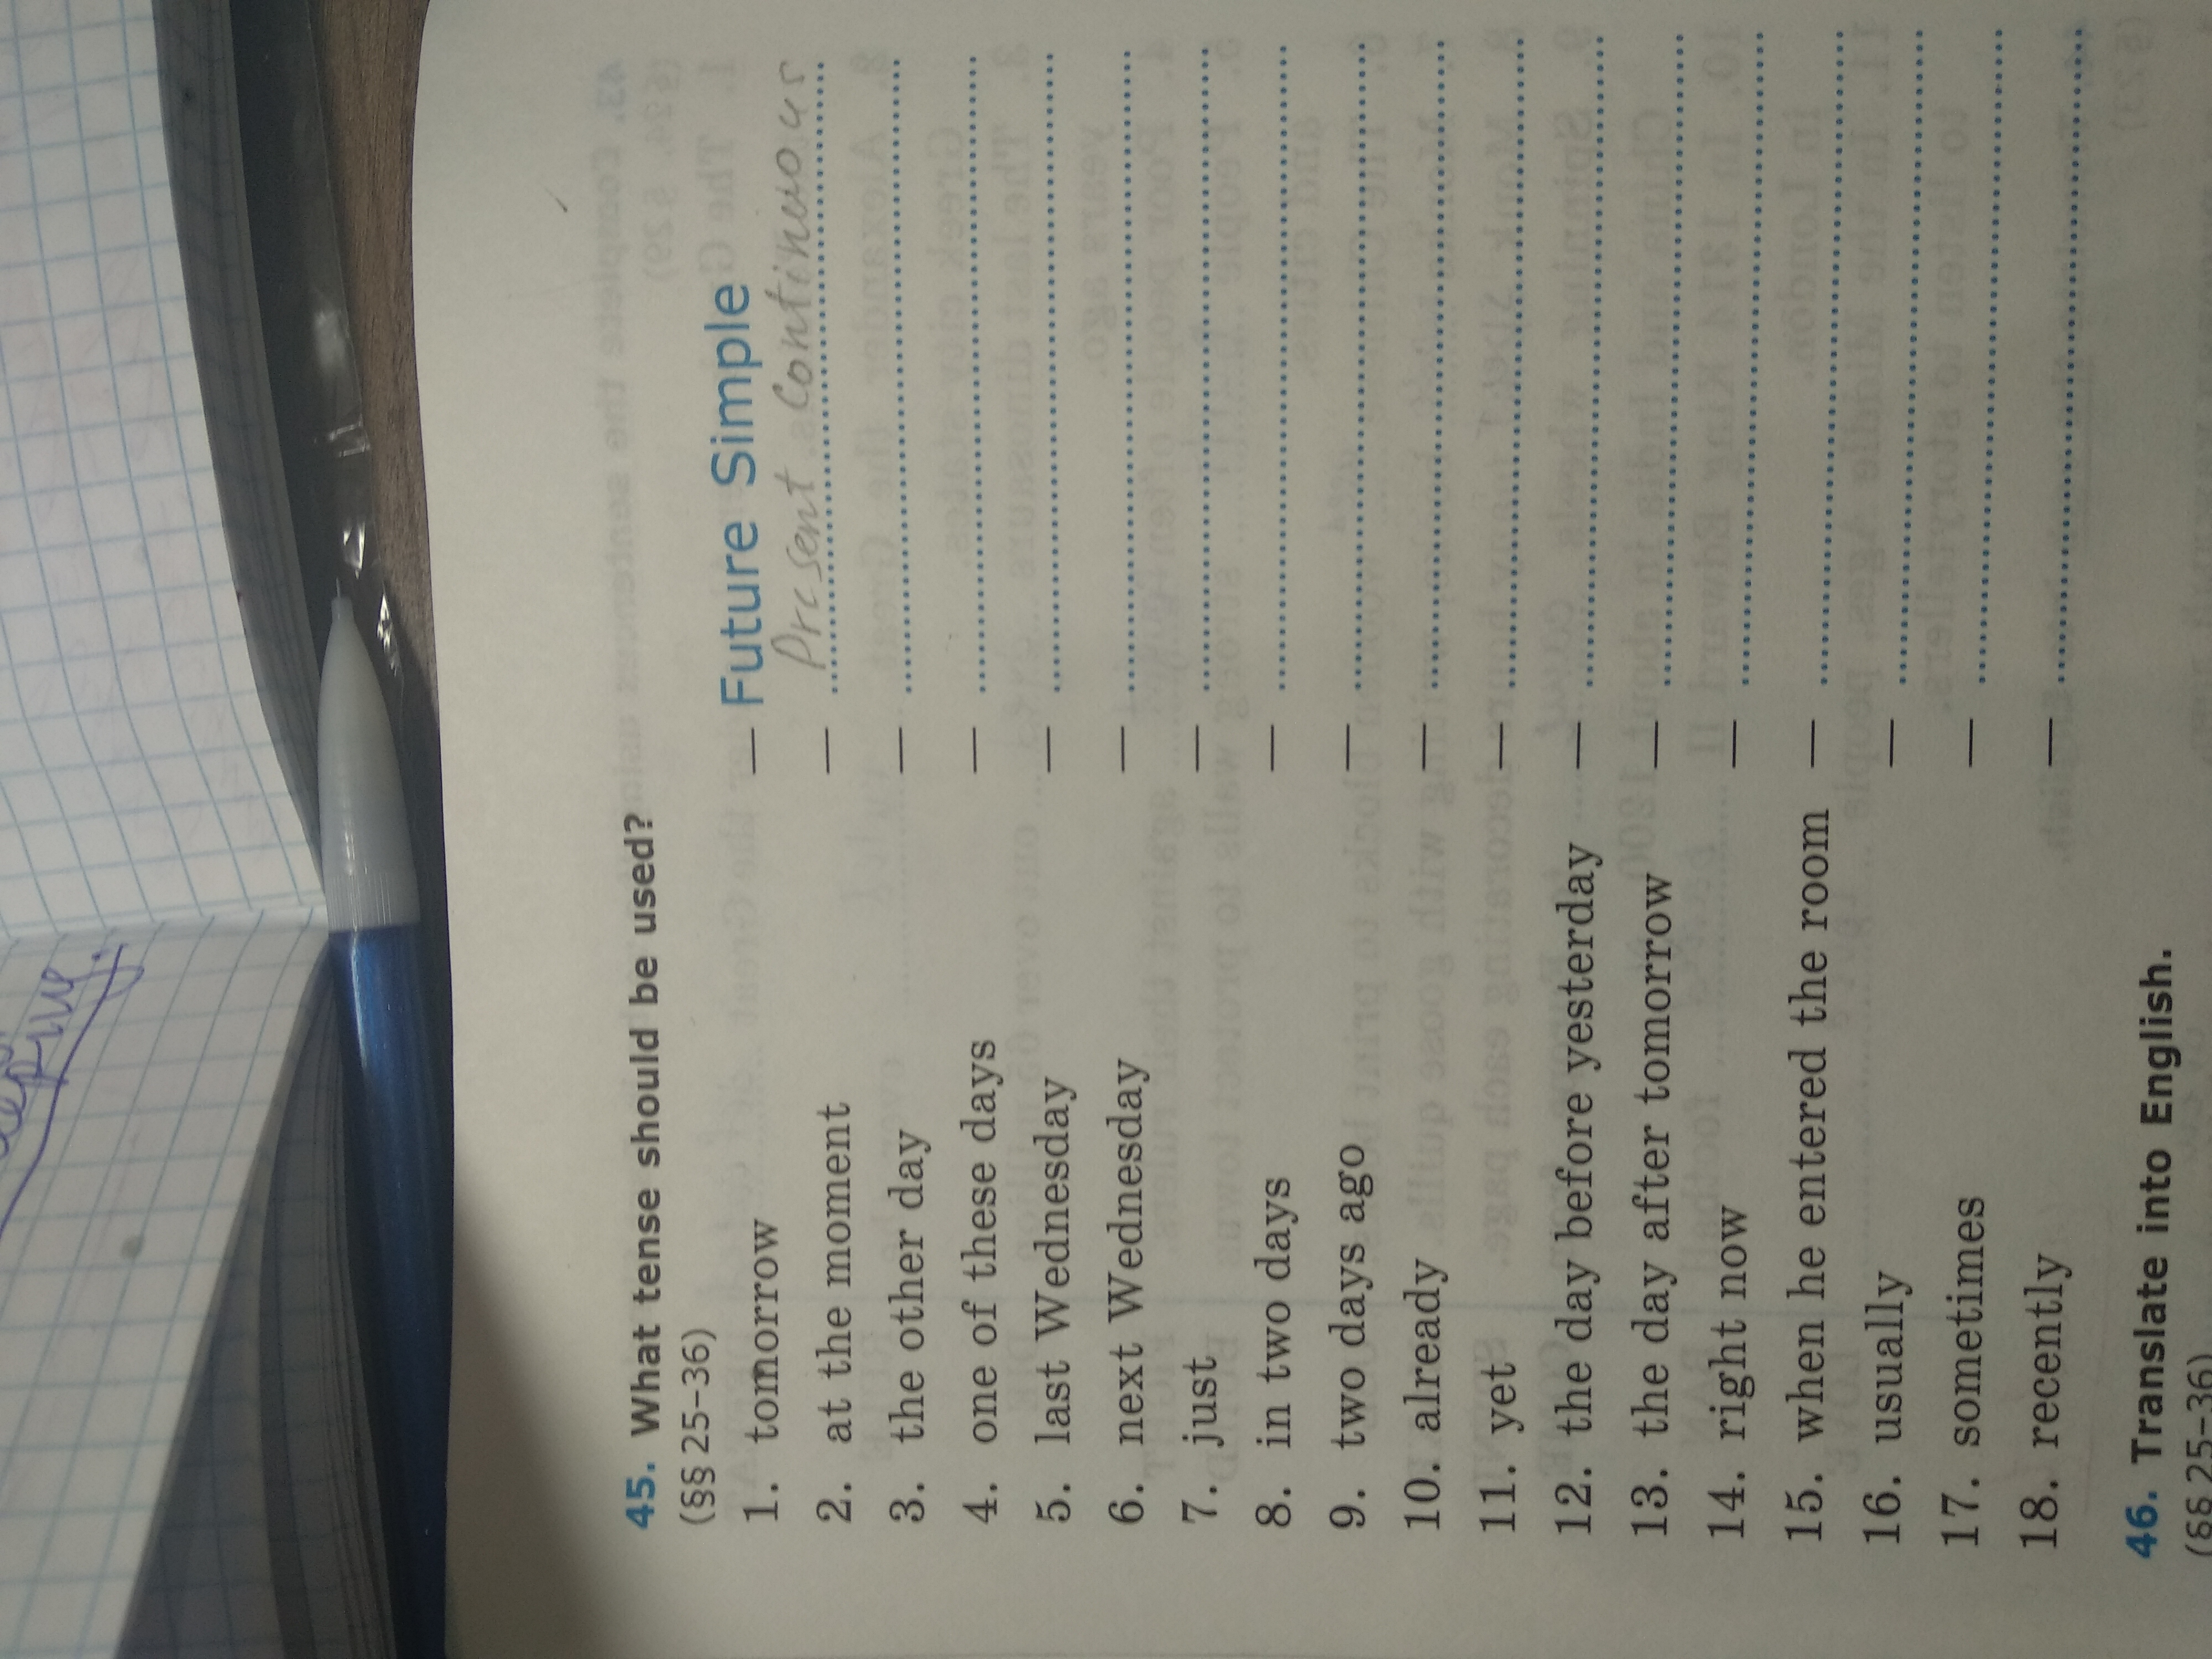 45. What tense should be used?
(§§ 25–36)
1. tomorrow — Future Simple
2. at the moment — Present Continuous
3. the other day —
4. one of these days —
5. last Wednesday —
6. next Wednesday —
7. just —
8. in two days —
9. two days ago —
10. already —
11. yet —
12. the day before yesterday —
13. the day after tomorrow —
14. right now —
15. when he entered the room —
16. usually —
17. sometimes —
18. recently —
46. Translate into English.
(§§ 25–36)